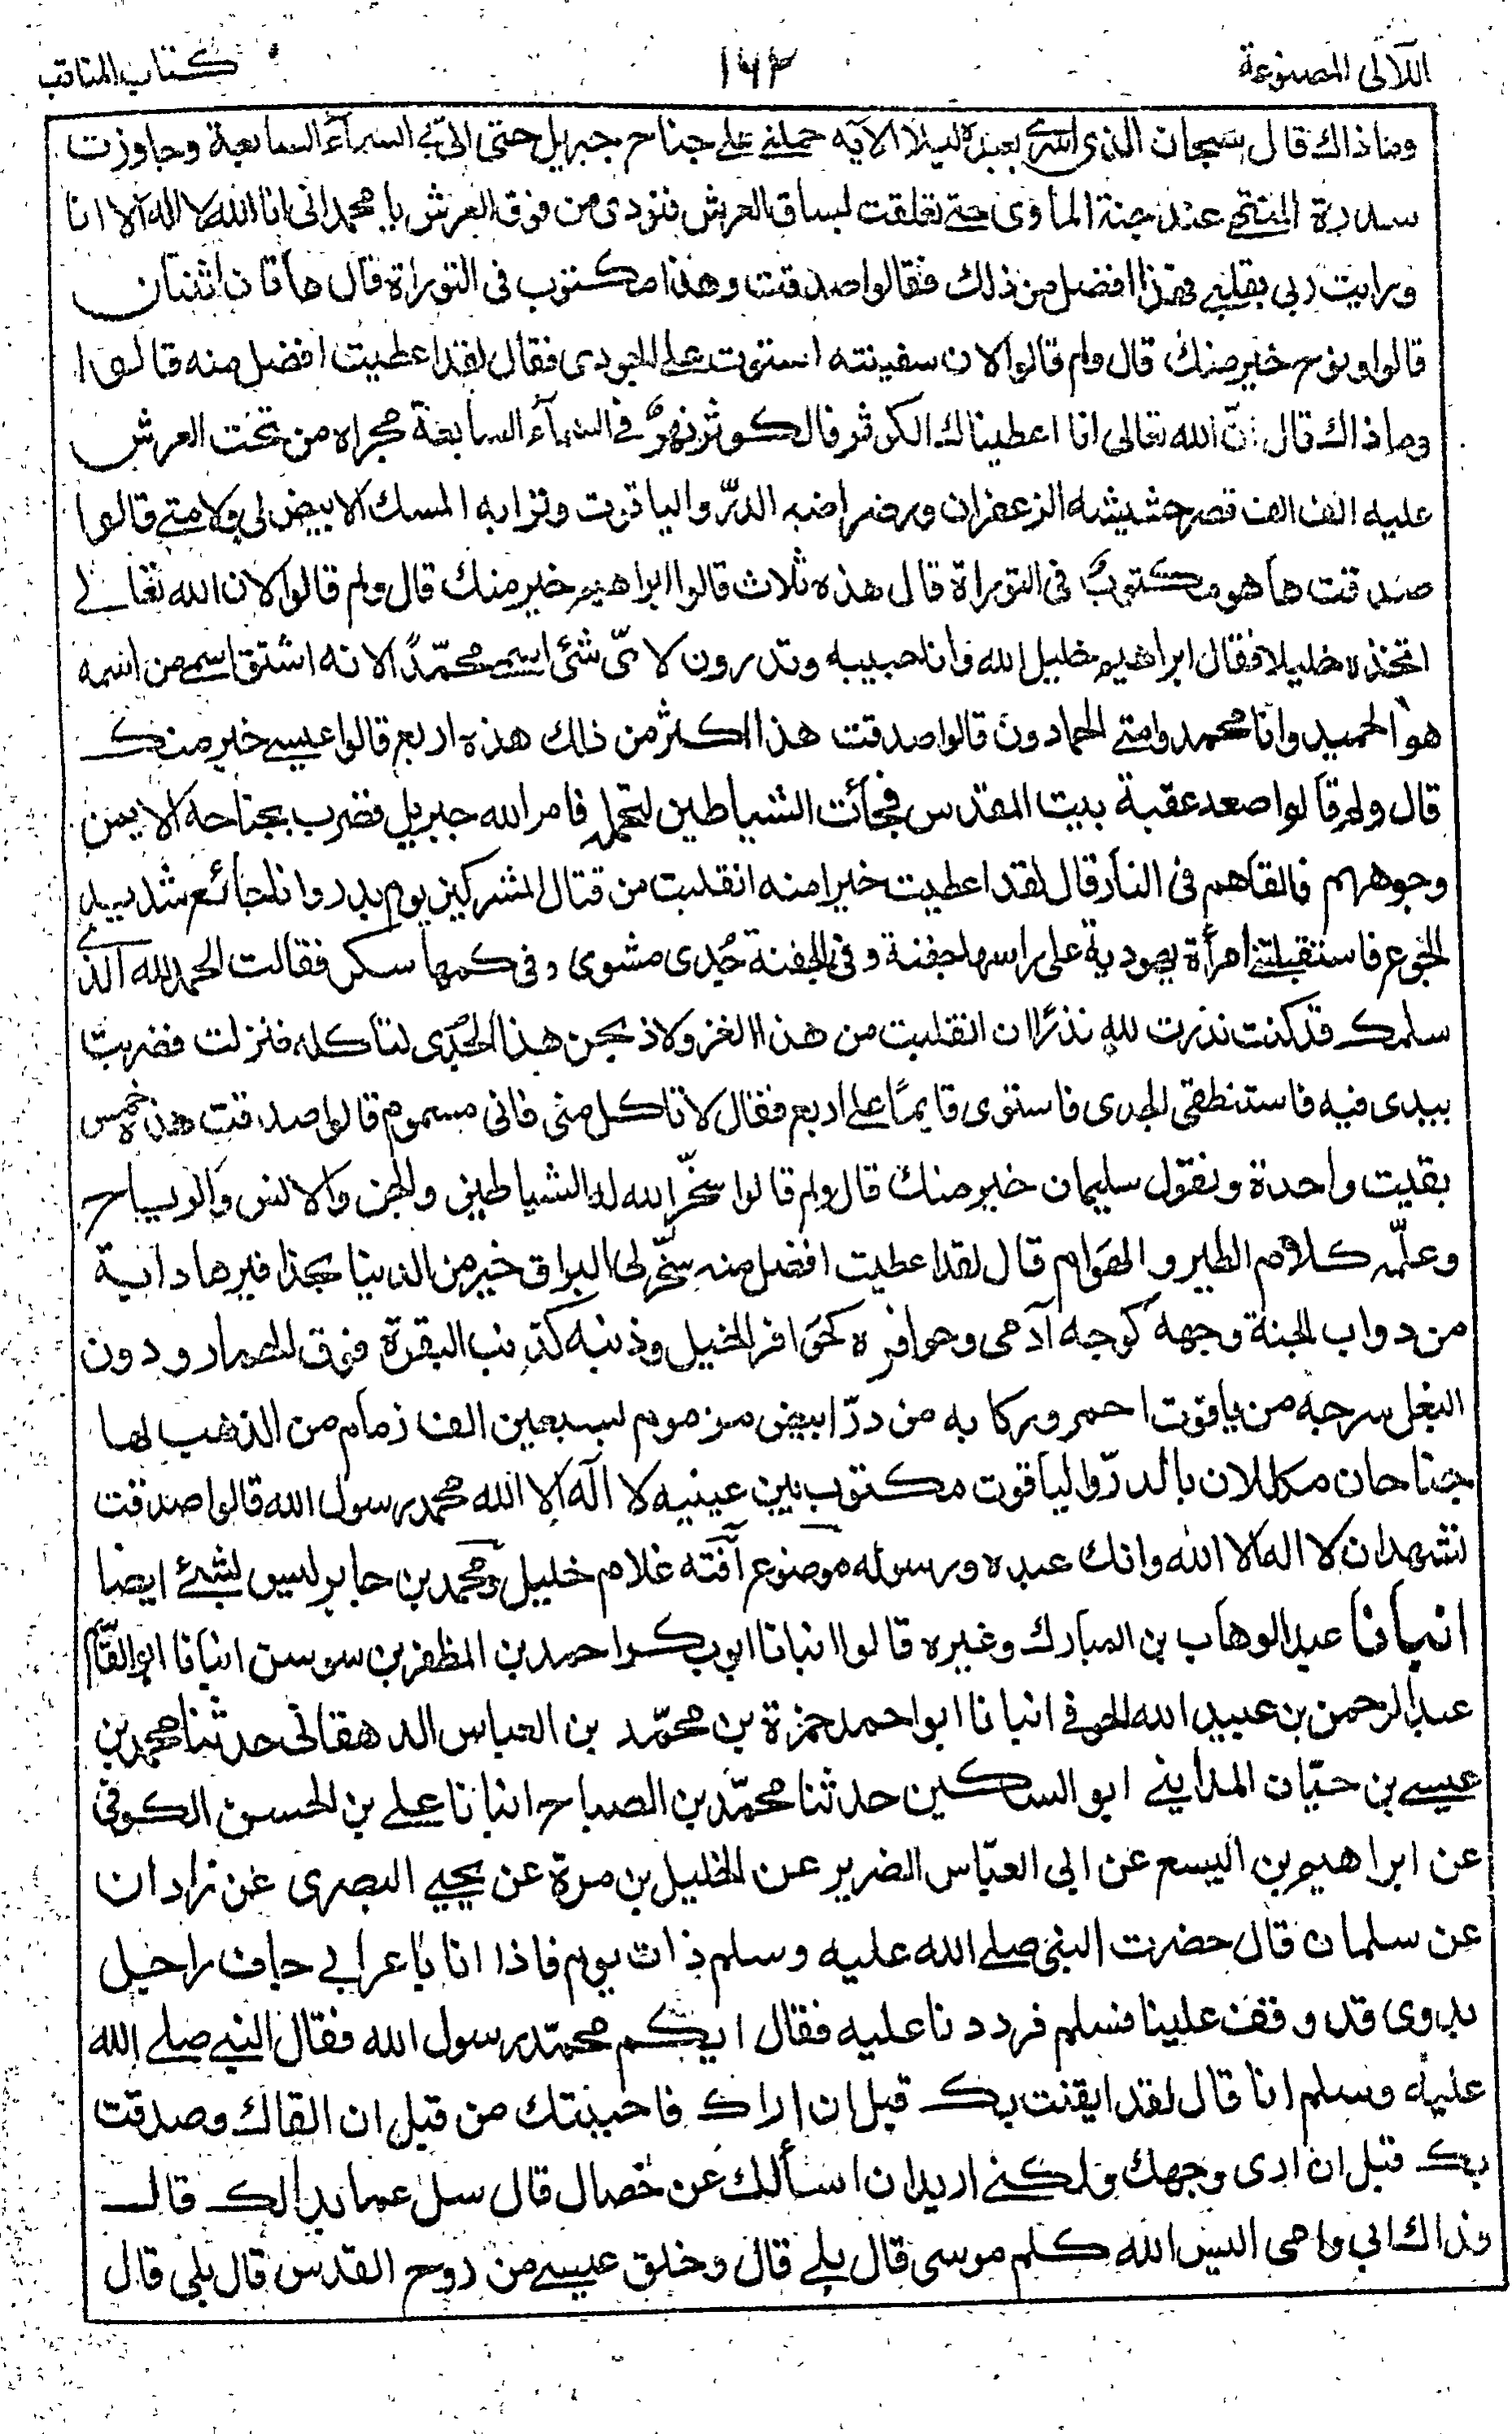 اللآلى المصنوعة
١٦٢
كتاب المناقب
وما ذاك قال سبحان الذى اسرى بعبده ليلا الآيه حملنى على جناح جبريل حتى اتى بى السماء السابعة وجاوزت
سدرة المنتهى عند جنة المأوى حتى تعلقت بساق العرش فنودى من فوق العرش يا محمد انى انا الله لا اله الا انا
ورايت ربى بقلبى فهذا افضل من ذلك فقالوا صدقت وهذا مكتوب فى التوراة قال هاتان اثنتان
قالوا ونوح خير منك قال ولم قالوا لان سفينته استوت على الجودى فقال لقد اعطيت افضل منه قالوا
وما ذاك قال ان الله تعالى انا اعطيناك الكوثر فالكوثر نهر فى السماء السابعة مجراه من تحت العرش
عليه الف الف قصر حشيشه الزعفران ورضراضه الدر والياقوت وترابه المسك الابيض لى ولامتى قالوا
صدقت ها هو مكتوب فى التوراة قال هذه ثلاث قالوا ابراهيم خير منك قال ولم قالوا لان الله تعالى
اتخذه خليلا فقال ابراهيم خليل الله وانا حبيبه وتدرون لاى شئ اسمى محمدًا لانه اشتق اسمى من اسمه
هو الحميد وانا محمد وامتى الحمادون قالوا صدقت هذا اكثر من ذلك هذه اربع قالوا عيسى خير منك
قال ولم قالوا صعد عقبة بيت المقدس فجأت الشياطين لتحمله فامر الله جبريل فضرب بجناحه الايمن
وجوههم فالقاهم فى النار قال لقد اعطيت خيرا منه انقلبت من قتال المشركين يوم بدر وانا جائع شديد
الجوع فاستقبلتنى امرأة يهودية على راسها جفنة وفى الجفنة جُدى مشوى وفى كمها سكر فقالت الحمد لله الذى
سلمك قد كنت نذرت لله نذرًا ان انقلبت من هذا الغزو لاذبحن هذا الجُدى لتاكله فنزلت فضربت
بيدى فيه فاستنطق الجدى فاستوى قايمًا على اربع فقال لا تاكل منى فانى مسموم قالوا صدقت هذه خمس
بقيت واحدة ونقول سليمان خير منك قال ولم قالوا سخر الله له الشياطين والجن والانس والرياح
وعلمه كلام الطير والهوام قال لقد اعطيت افضل منه سخر لى البراق خير من الدنيا بحذافيرها دابة
من دواب الجنة وجهه كوجه آدمى وحوافره كحوافر الخيل وذنبه كذنب البقرة فوق الحمار ودون
البغل سرجه من ياقوت احمر وركابه من در ابيض مزموم بسبعين الف زمام من الذهب لها
جناحان مكللان بالدر والياقوت مكتوب بين عينيه لا اله الا الله محمد رسول الله قالوا صدقت
نشهد ان لا اله الا الله وانك عبده ورسوله موضوع آفته غلام خليل ومحمد بن جابر ليس بشئ ايضا
انبانا عبد الوهاب بن المبارك وغيره قالوا انبانا ابوبكر احمد بن المظفر بن سوسن انبانا ابوالقاسم
عبد الرحمن بن عبيد الله الحرفى انبانا ابو احمد حمزة بن محمد بن العباس الدهقانى حدثنا محمد بن
عيسى بن حبان المداينى ابو السكين حدثنا محمد بن الصباح انبانا على بن الحسن الكوفى
عن ابراهيم بن اليسع عن ابى العباس الضرير عن الخليل بن مرة عن يحيى البصرى عن زادان
عن سلمان قال حضرت النبى صلى الله عليه وسلم ذات يوم فاذا انا باعرابى جاف راحيل
بدوى قد وقف علينا فسلم فرددنا عليه فقال ايكم محمد رسول الله فقال النبى صلى الله
عليه وسلم انا قال لقد ايقنت بك قبل ان اراك فاحببتك من قبل ان القاك وصدقت
بك قبل ان ارى وجهك ولكنى اريد ان اسألك عن خصال قال سل عما بدا لك قال
فداك ابى وامى اليس الله كلم موسى قال بلى قال وخلق عيسى من روح القدس قال بلى قال